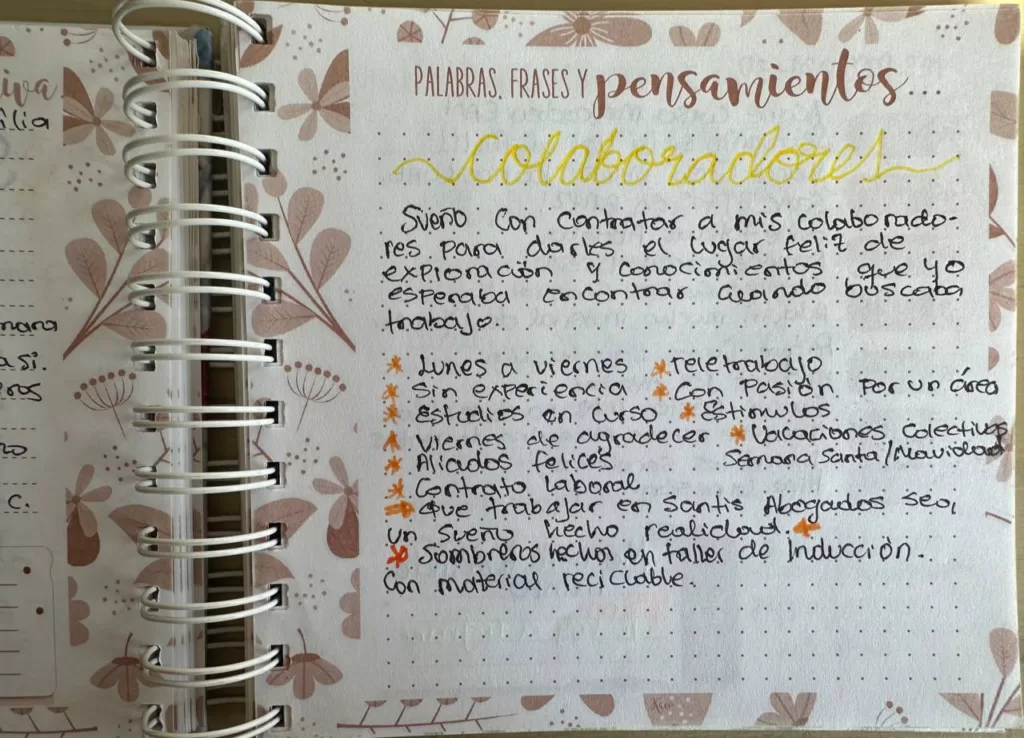 iva
ilia
mana
asi.
eros
C.
PALABRAS, FRASES Y pensamientos...
Colaboradores
Sueño con contratar a mis colaborado-
res para darles el lugar feliz de
exploración y conocimientos que yo
esperaba encontrar cuando buscaba
trabajo.
* Lunes a viernes * Teletrabajo
* Sin experiencia * Con Pasión por un área
* Estudios en curso * Estimulos
* Viernes de agradecer * Vacaciones Colectivas
* Aliados felices Semana Santa/Navidad
* Contrato laboral
➡ Que trabajar en Santis Abogados sea,
un sueño hecho realidad. ⬅
* Sombreros hechos en taller de Inducción.
Con material reciclable.